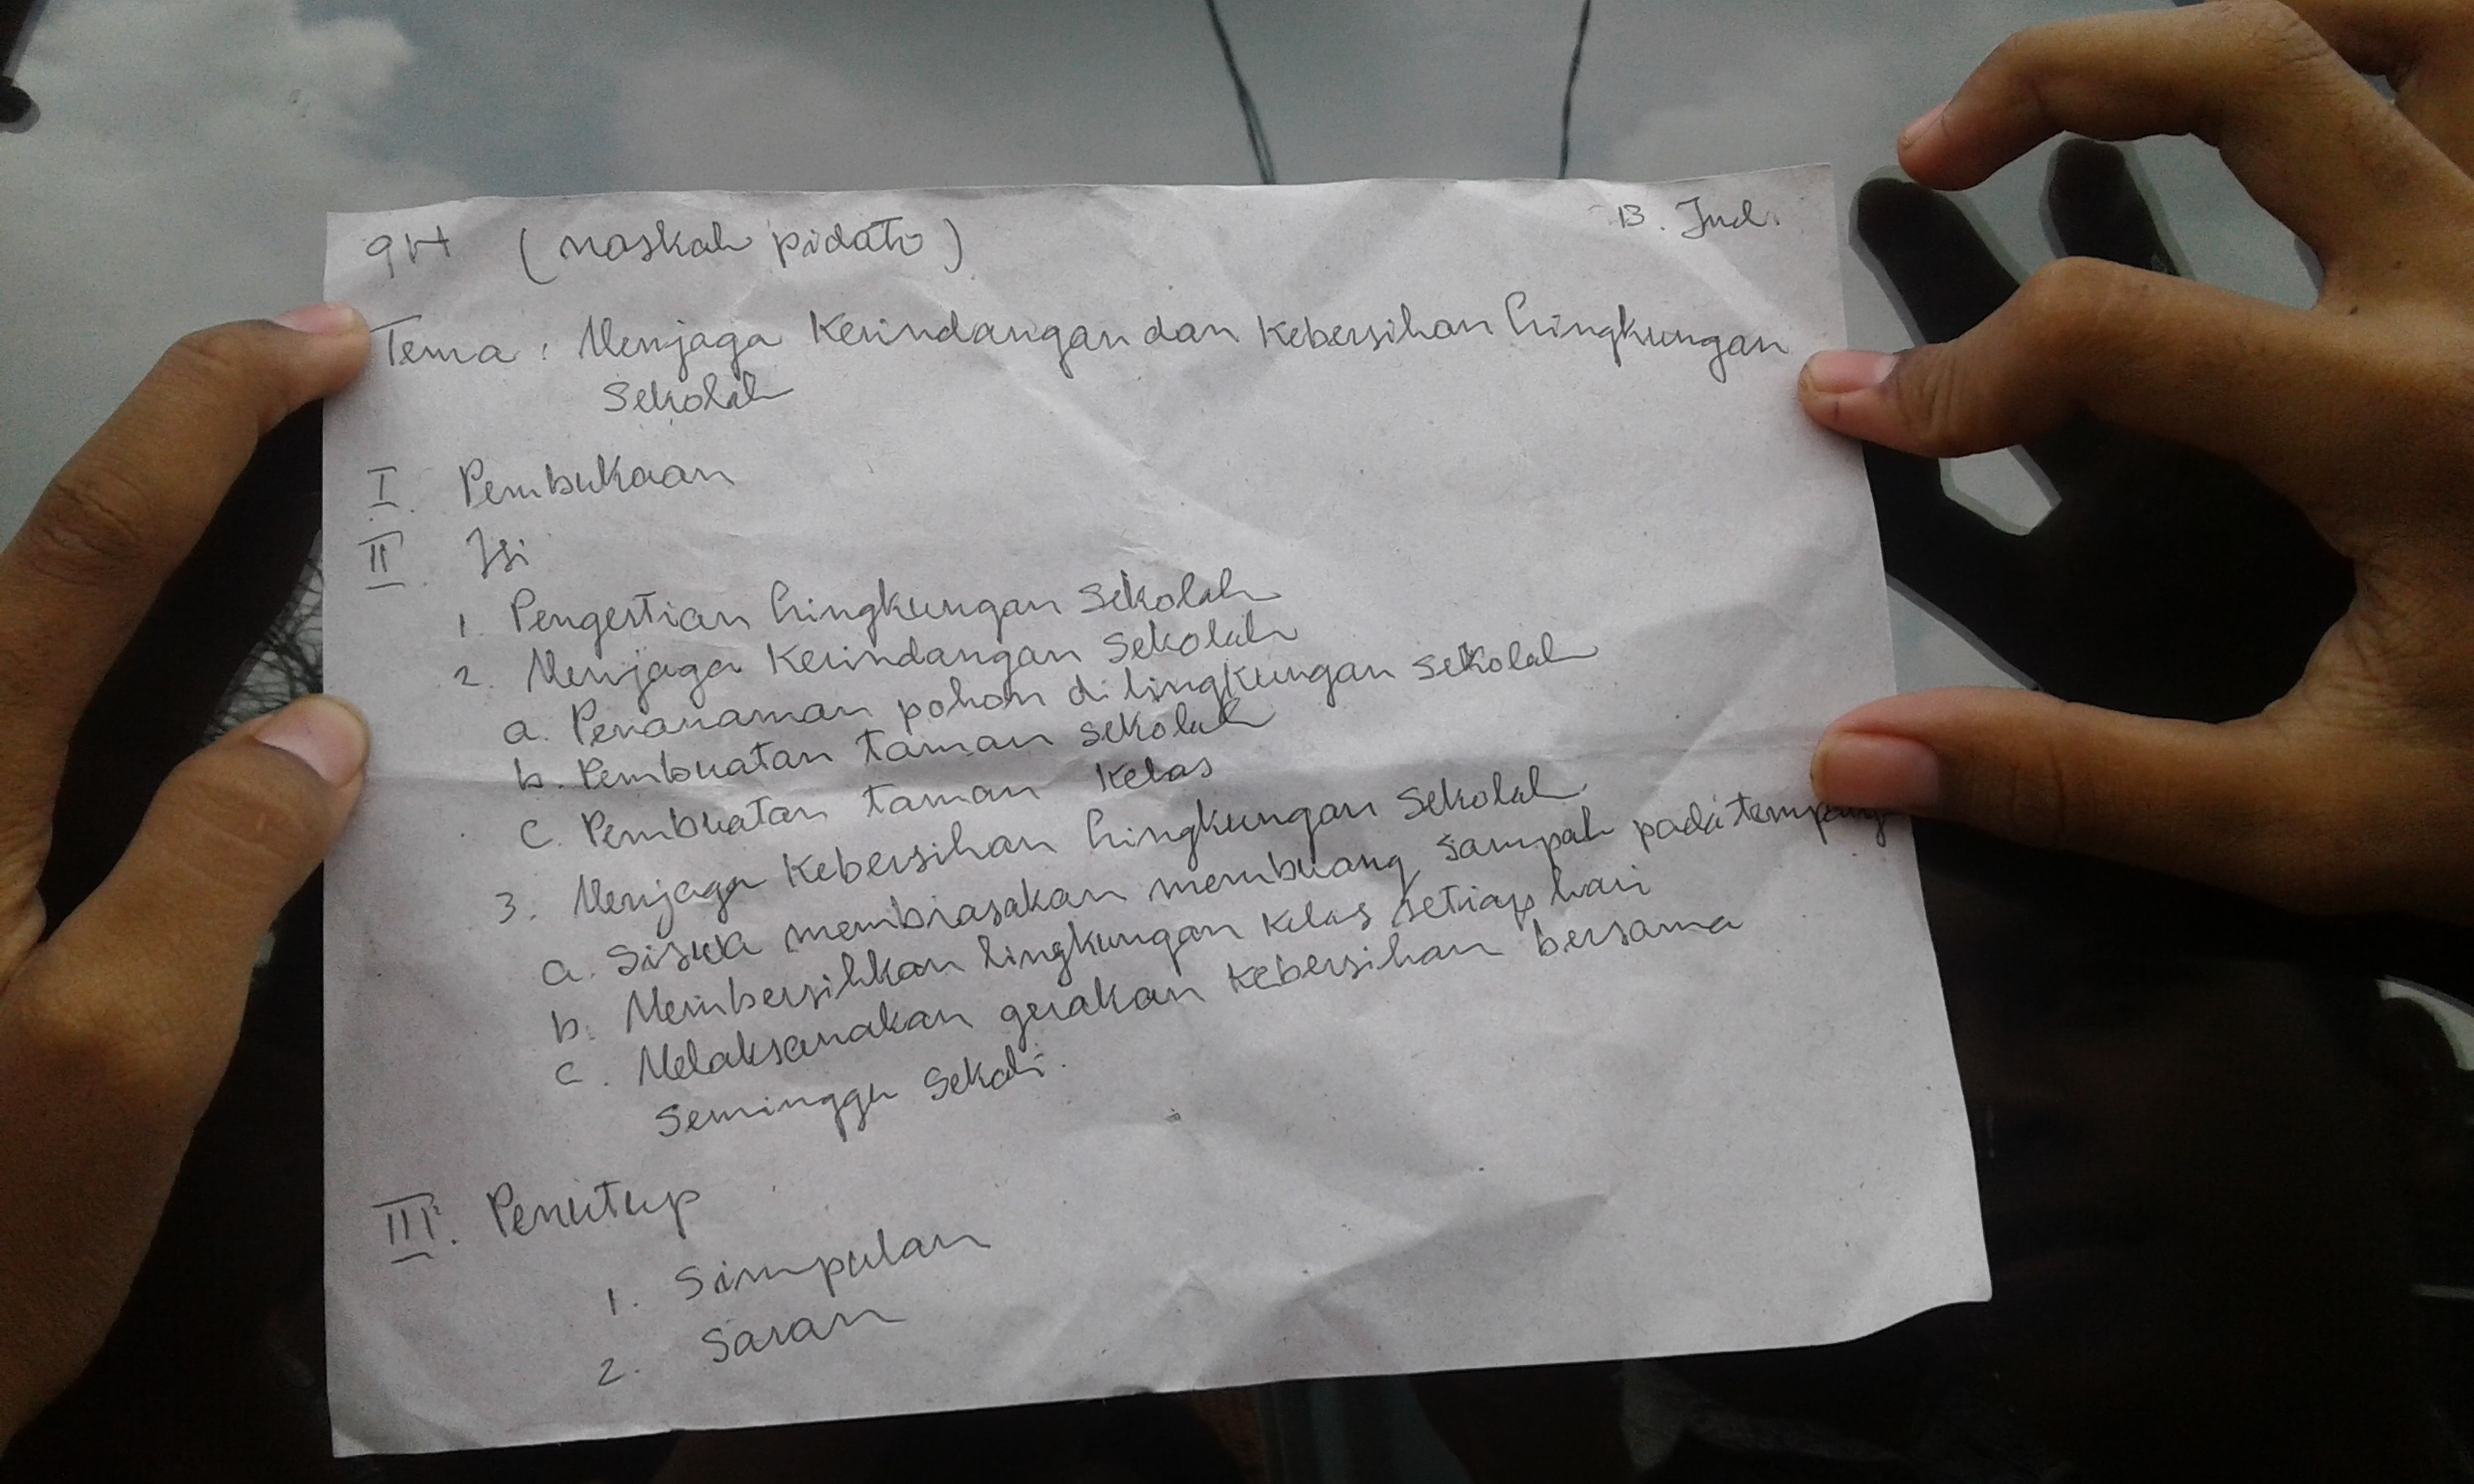 9H (naskah pidato)
B. Ind.
Tema : Menjaga Kerindangan dan Kebersihan Lingkungan
Sekolah
I. Pembukaan
II. Isi
1. Pengertian Lingkungan Sekolah
2. Menjaga Kerindangan Sekolah
a. Penanaman pohon di lingkungan sekolah
b. Pembuatan taman sekolah
c. Pembuatan taman kelas
3. Menjaga Kebersihan Lingkungan Sekolah.
a. Siswa membiasakan membuang sampah pada
b. Membersihkan lingkungan kelas setiap hari
c. Melaksanakan gerakan kebersihan bersama
Seminggu Sekali.
III. Penutup
1. Simpulan
2. Saran